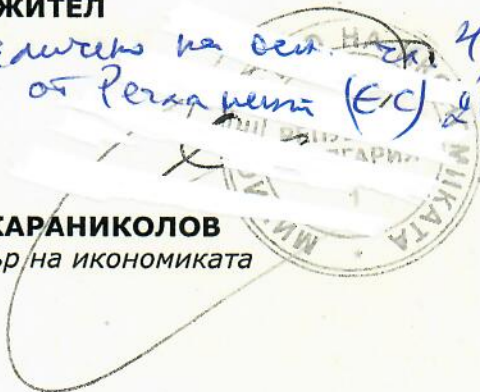 ЖИТЕЛ
на осн. чл. 4
от Регламент (ЕС) 2
КАРАНИКОЛОВ
р на икономиката